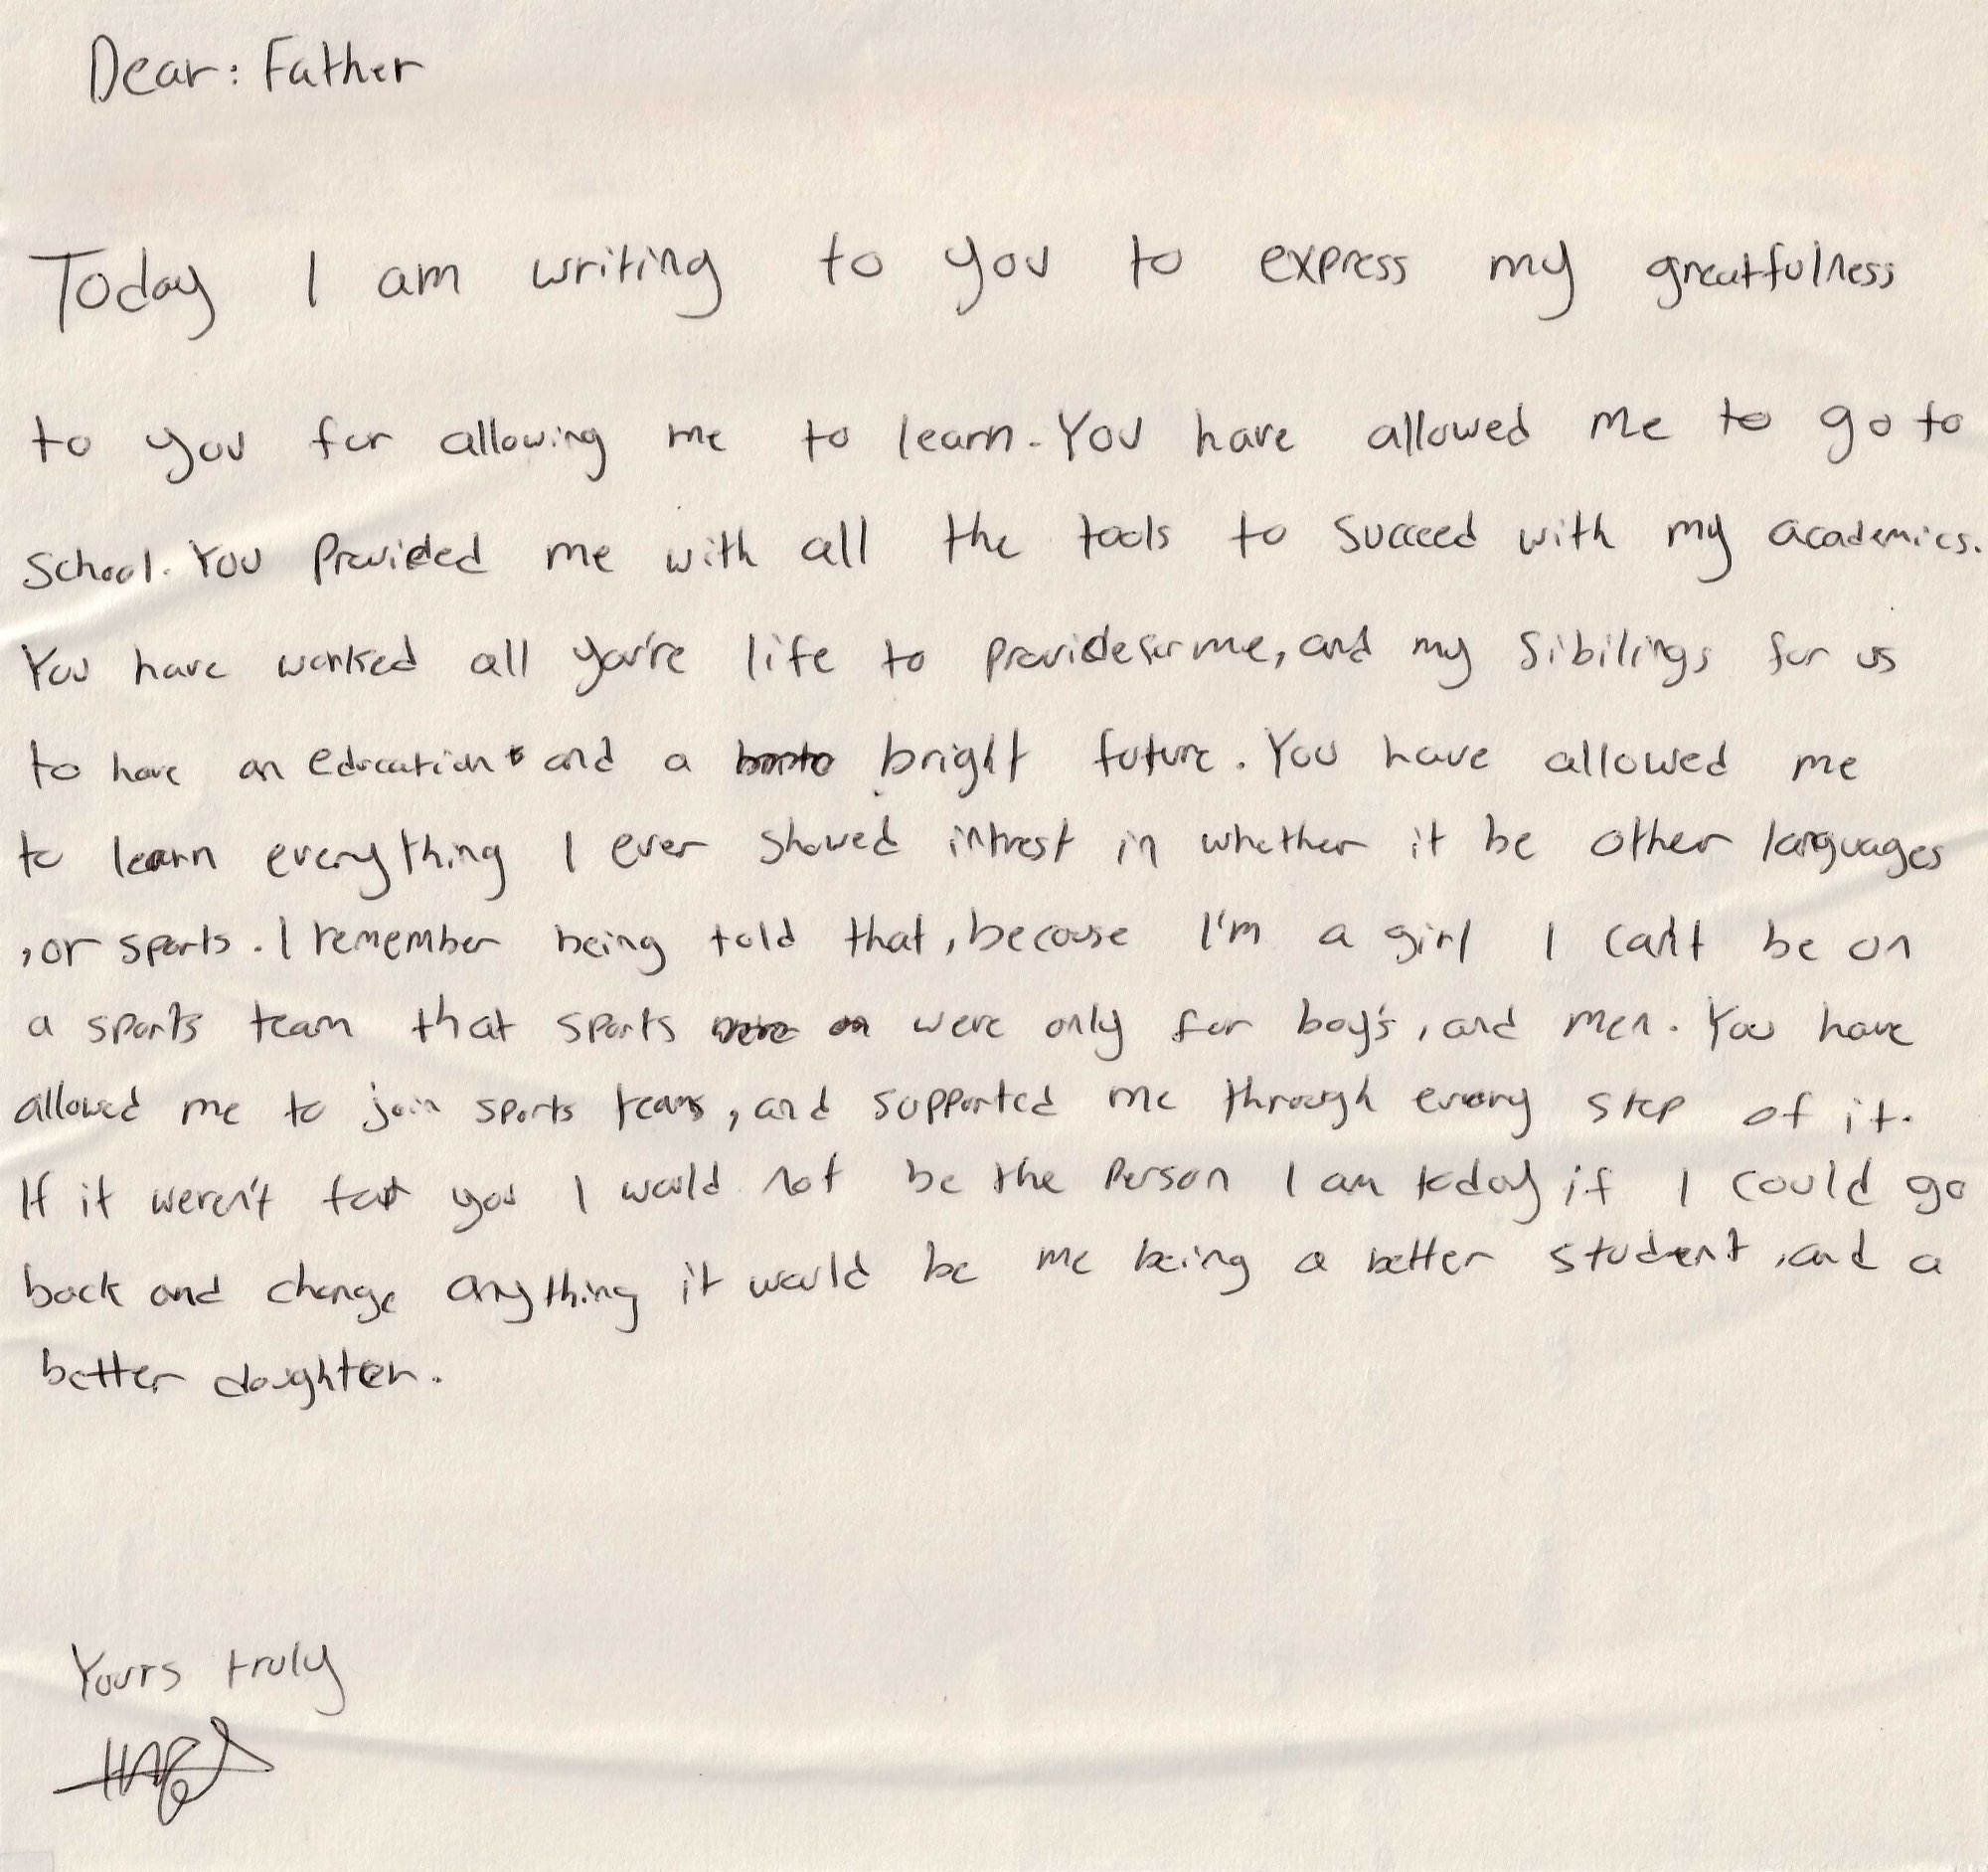 Dear: Father
Today I am writing to you to express my greatfulness
to you for allowing me to learn. You have allowed me to go to
School. You Provided me with all the tools to Succeed with my academics.
You have worked all you're life to provide for me, and my Sibilings for us
to have an education and a bright future. You have allowed me
to learn everything I ever showed intrest in whether it be other languages
, or sports. I remember being told that, because I'm a girl I can't be on
a sports team that sports were only for boy's, and men. You have
allowed me to join sports teams, and supported me through every step of it.
If it weren't for you I would not be the Person I am today if I could go
back and change anything it would be me being a better student, and a
better daughter.
Yours truly